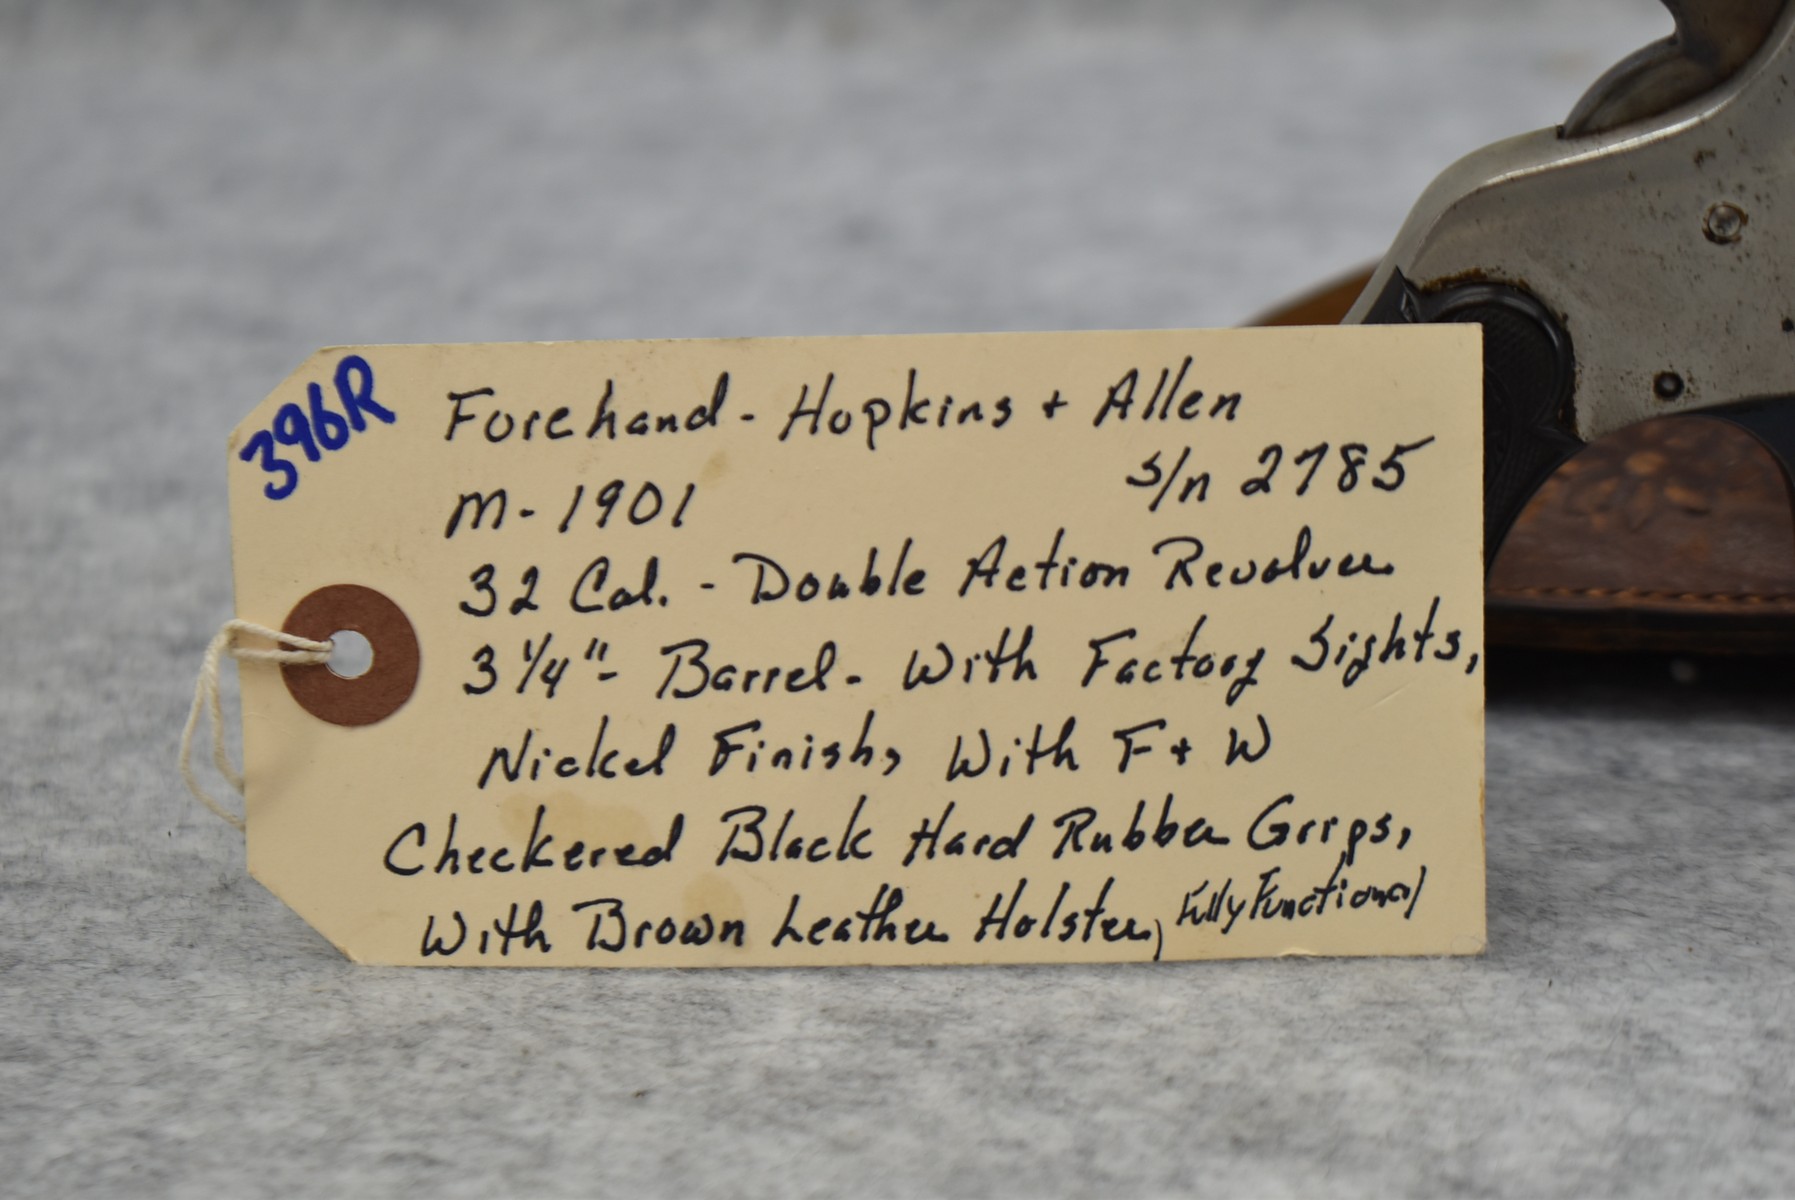 396R
Forehand - Hopkins + Allen
M - 1901 s/n 2785
32 Cal. - Double Action Revolver
3 1/4" - Barrel - With Factory Sights,
Nickel Finish, With F + W
Checkered Black Hard Rubber Grips,
With Brown Leather Holster, Fully Functional